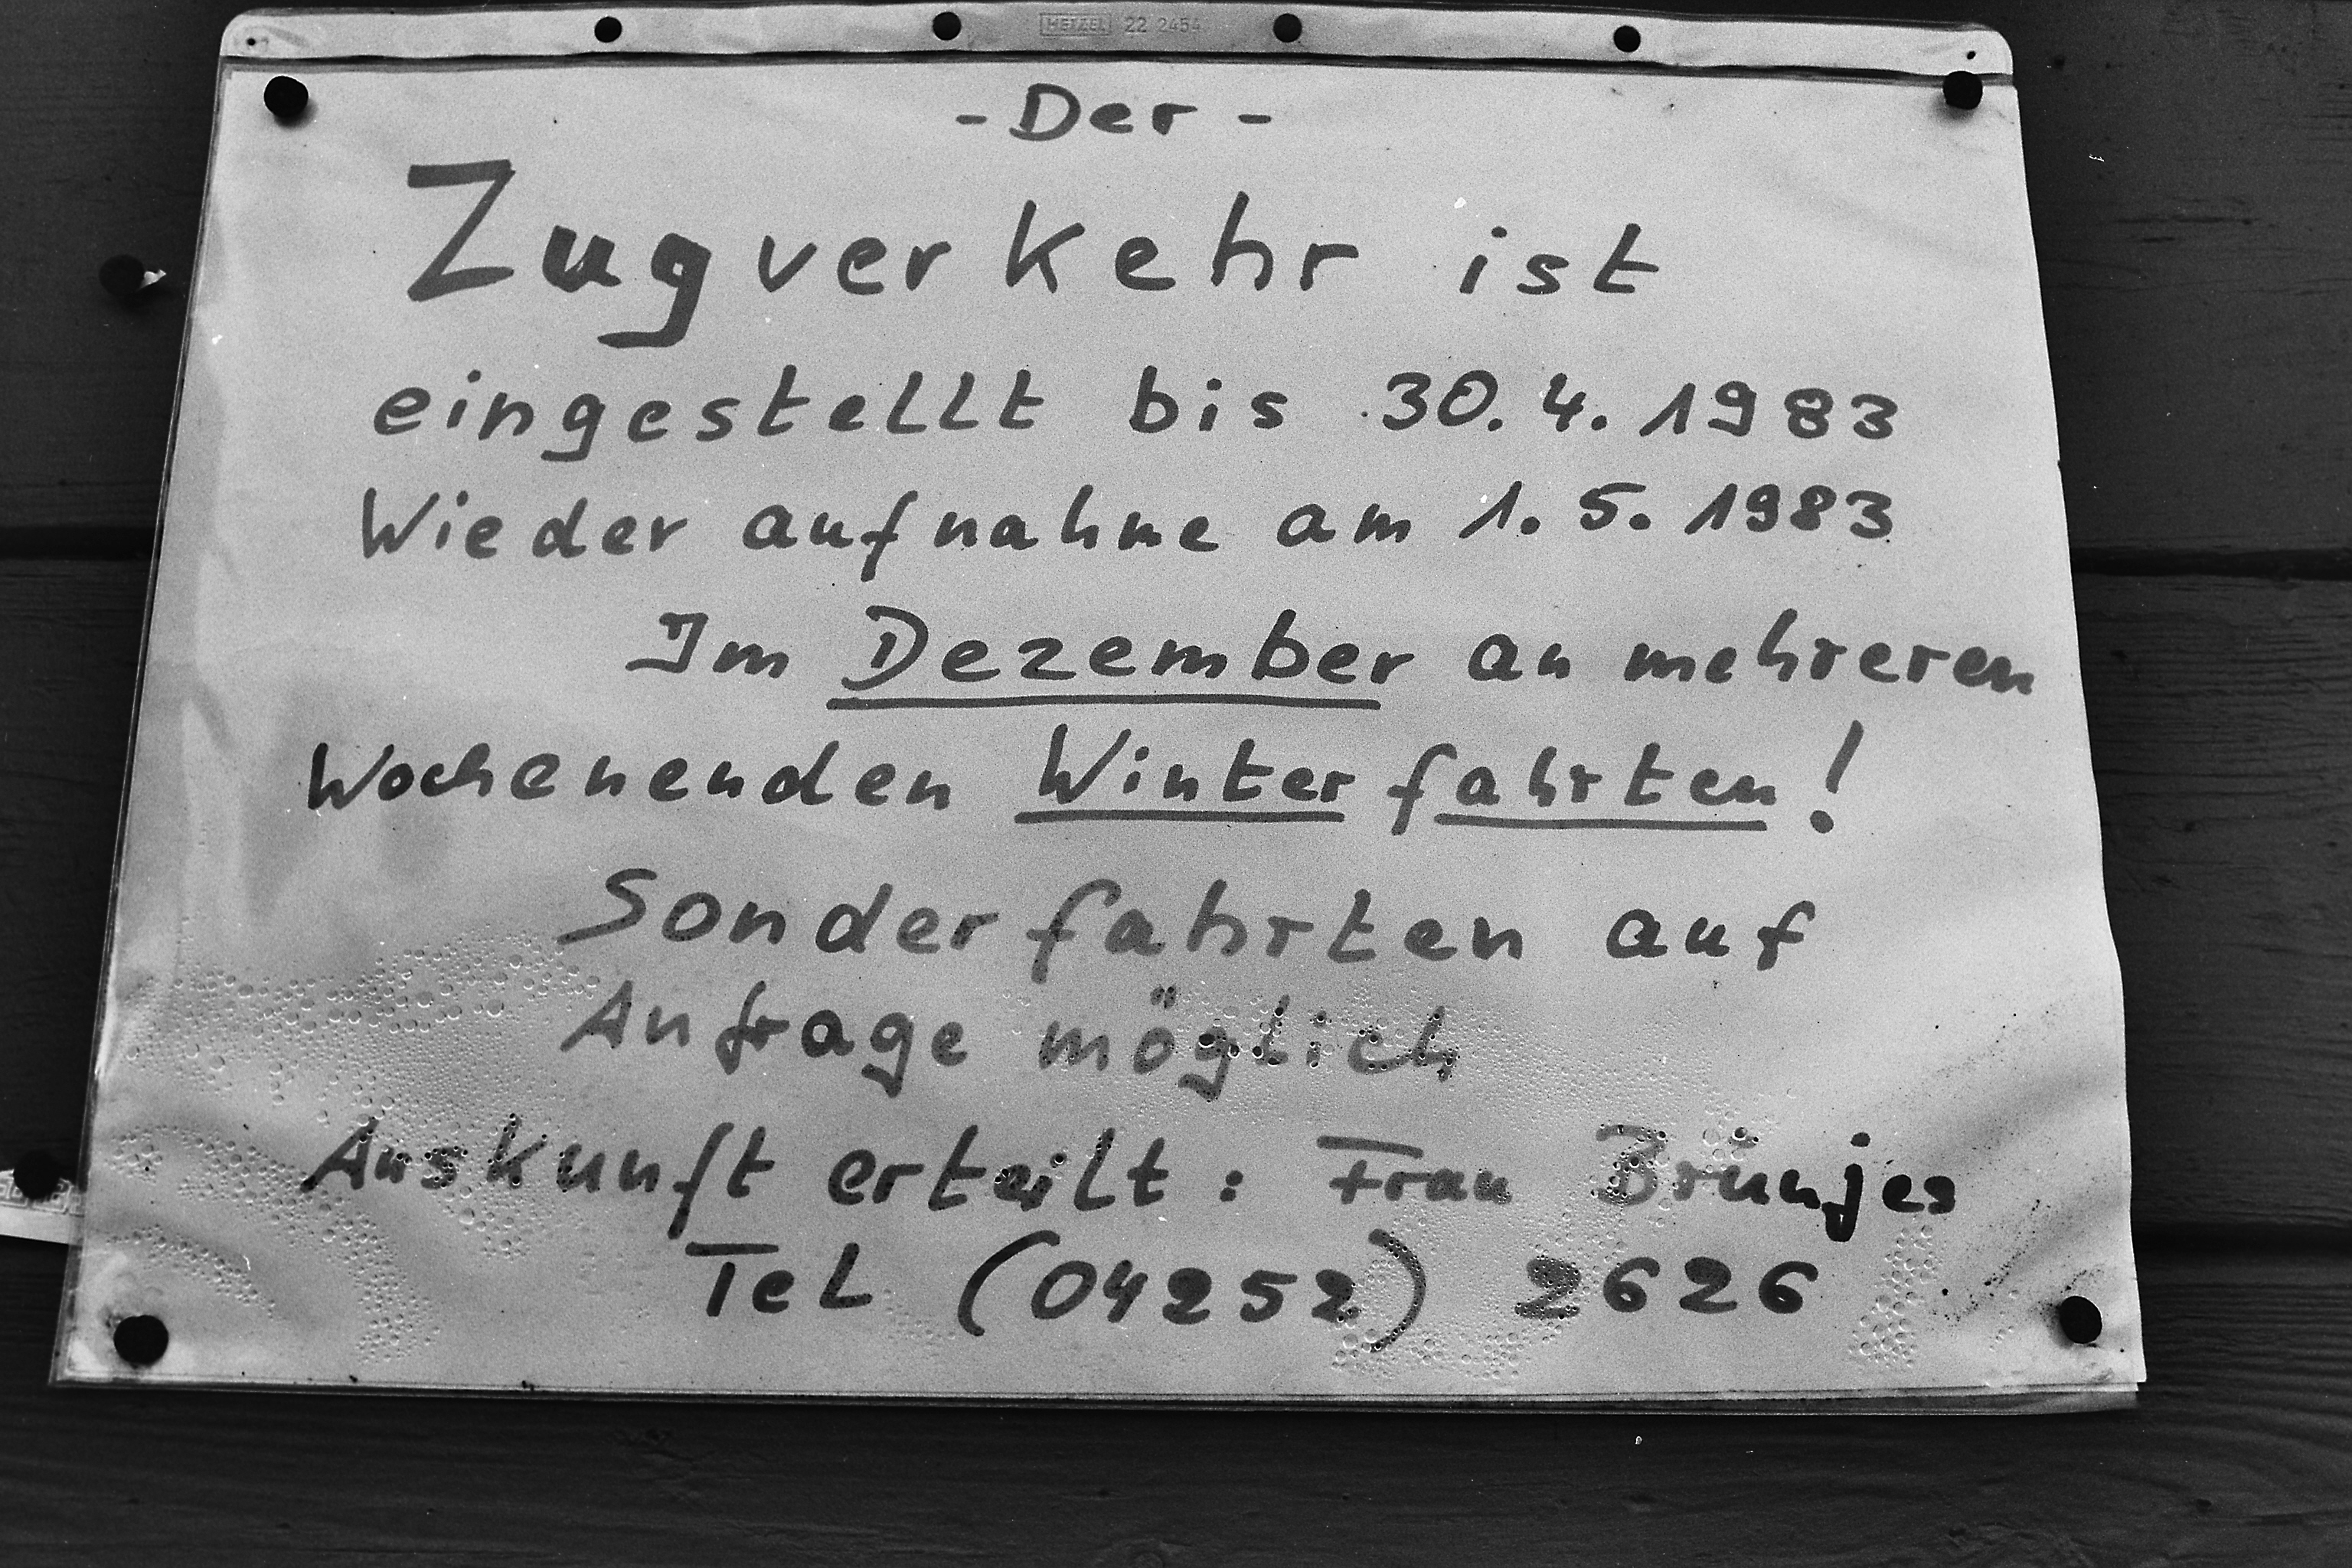 HETZEL 22 2454
- Der -
Zugverkehr ist
eingestellt bis 30.4.1983
Wiederaufnahme am 1.5.1983
Im Dezember an mehreren
Wochenenden Winterfahrten!
Sonderfahrten auf
Anfrage möglich
Auskunft erteilt: Frau Brünjes
Tel (04252) 2626